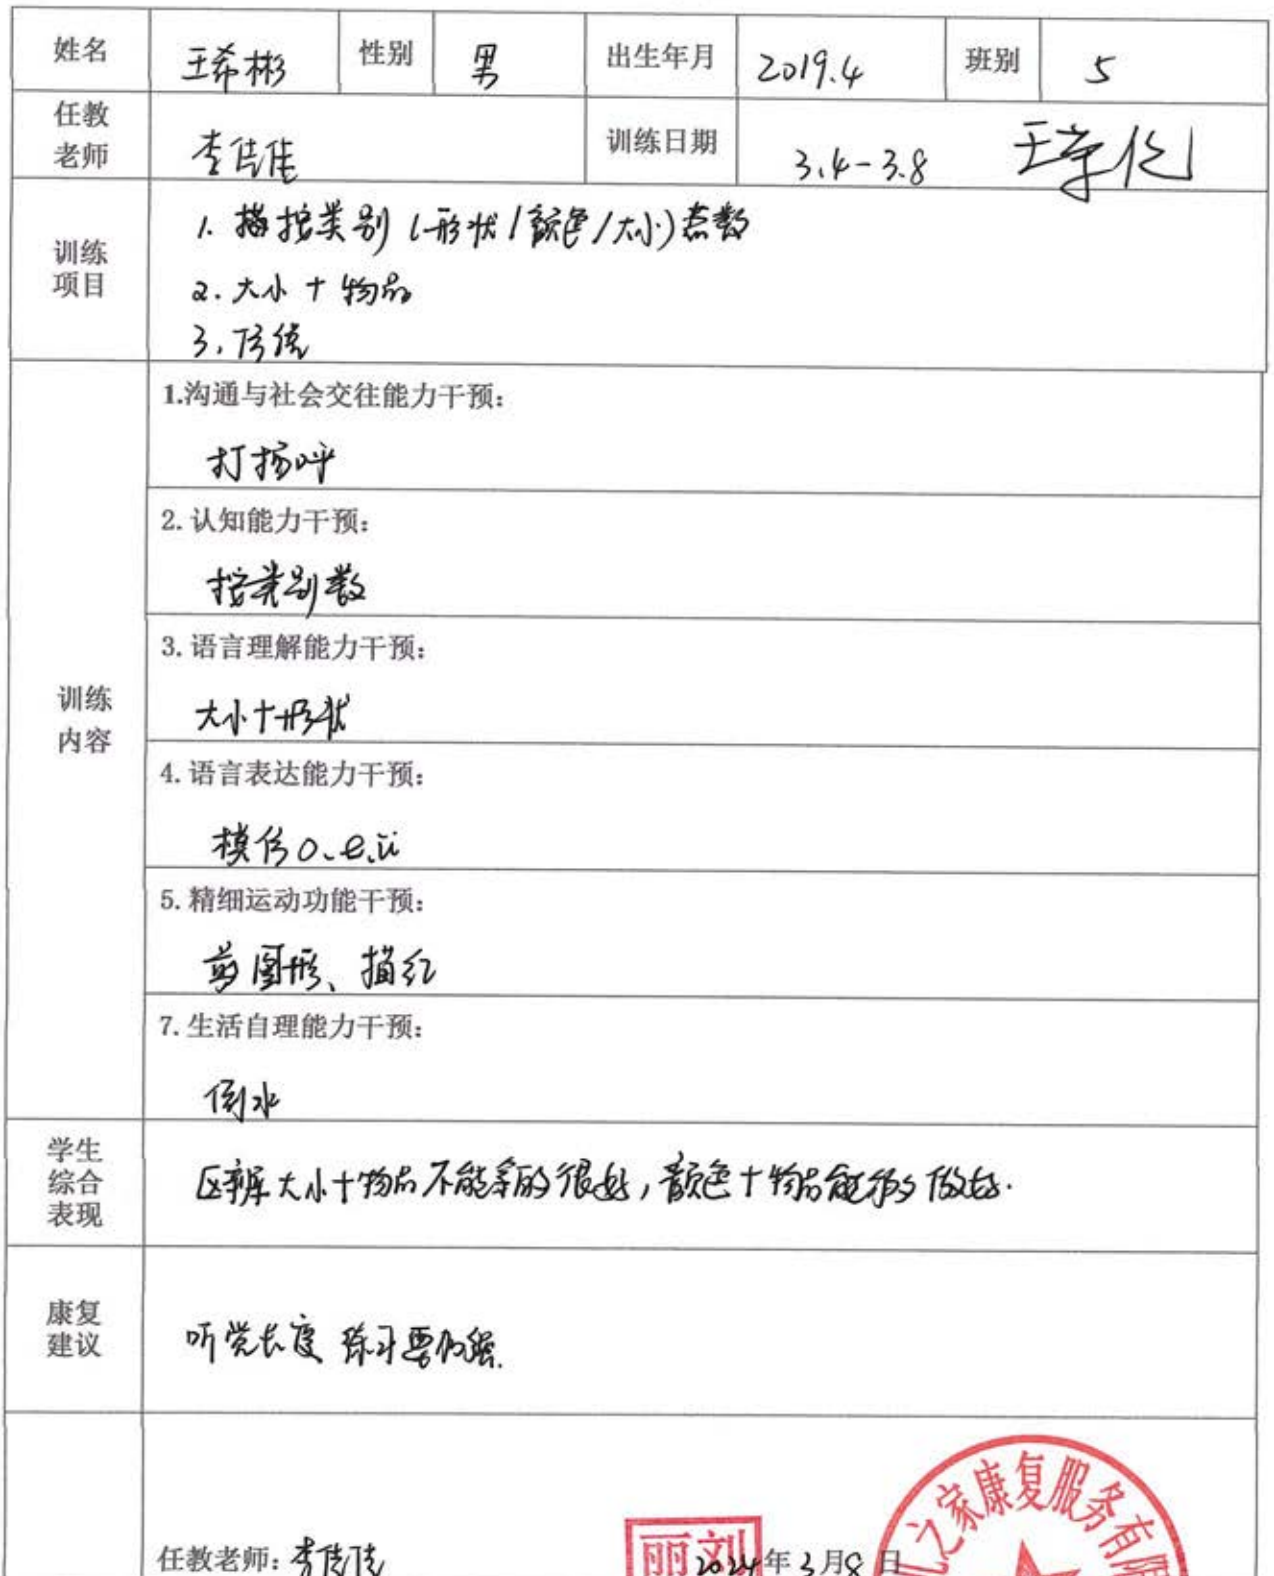 姓名 王希彬 性别 男 出生年月 2019.4 班别 5
任教老师 李佳佳 训练日期 3.4-3.8
训练项目
1. 按类别(形状/颜色/大小)点数
2. 大小+物品
3.仿绕
训练内容
1.沟通与社会交往能力干预：
打招呼
2. 认知能力干预：
按类别数
3. 语言理解能力干预：
大小+形状
4. 语言表达能力干预：
模仿o、e、ü
5. 精细运动功能干预：
剪图形、描红
7. 生活自理能力干预：
倒水
学生综合表现
区辨大小+物品不能 的很好,颜色+物品能 做好.
康复建议
听觉长度 练习要加强.
任教老师：李佳佳 2024年3月8日
丽刘
之家康复服务有限